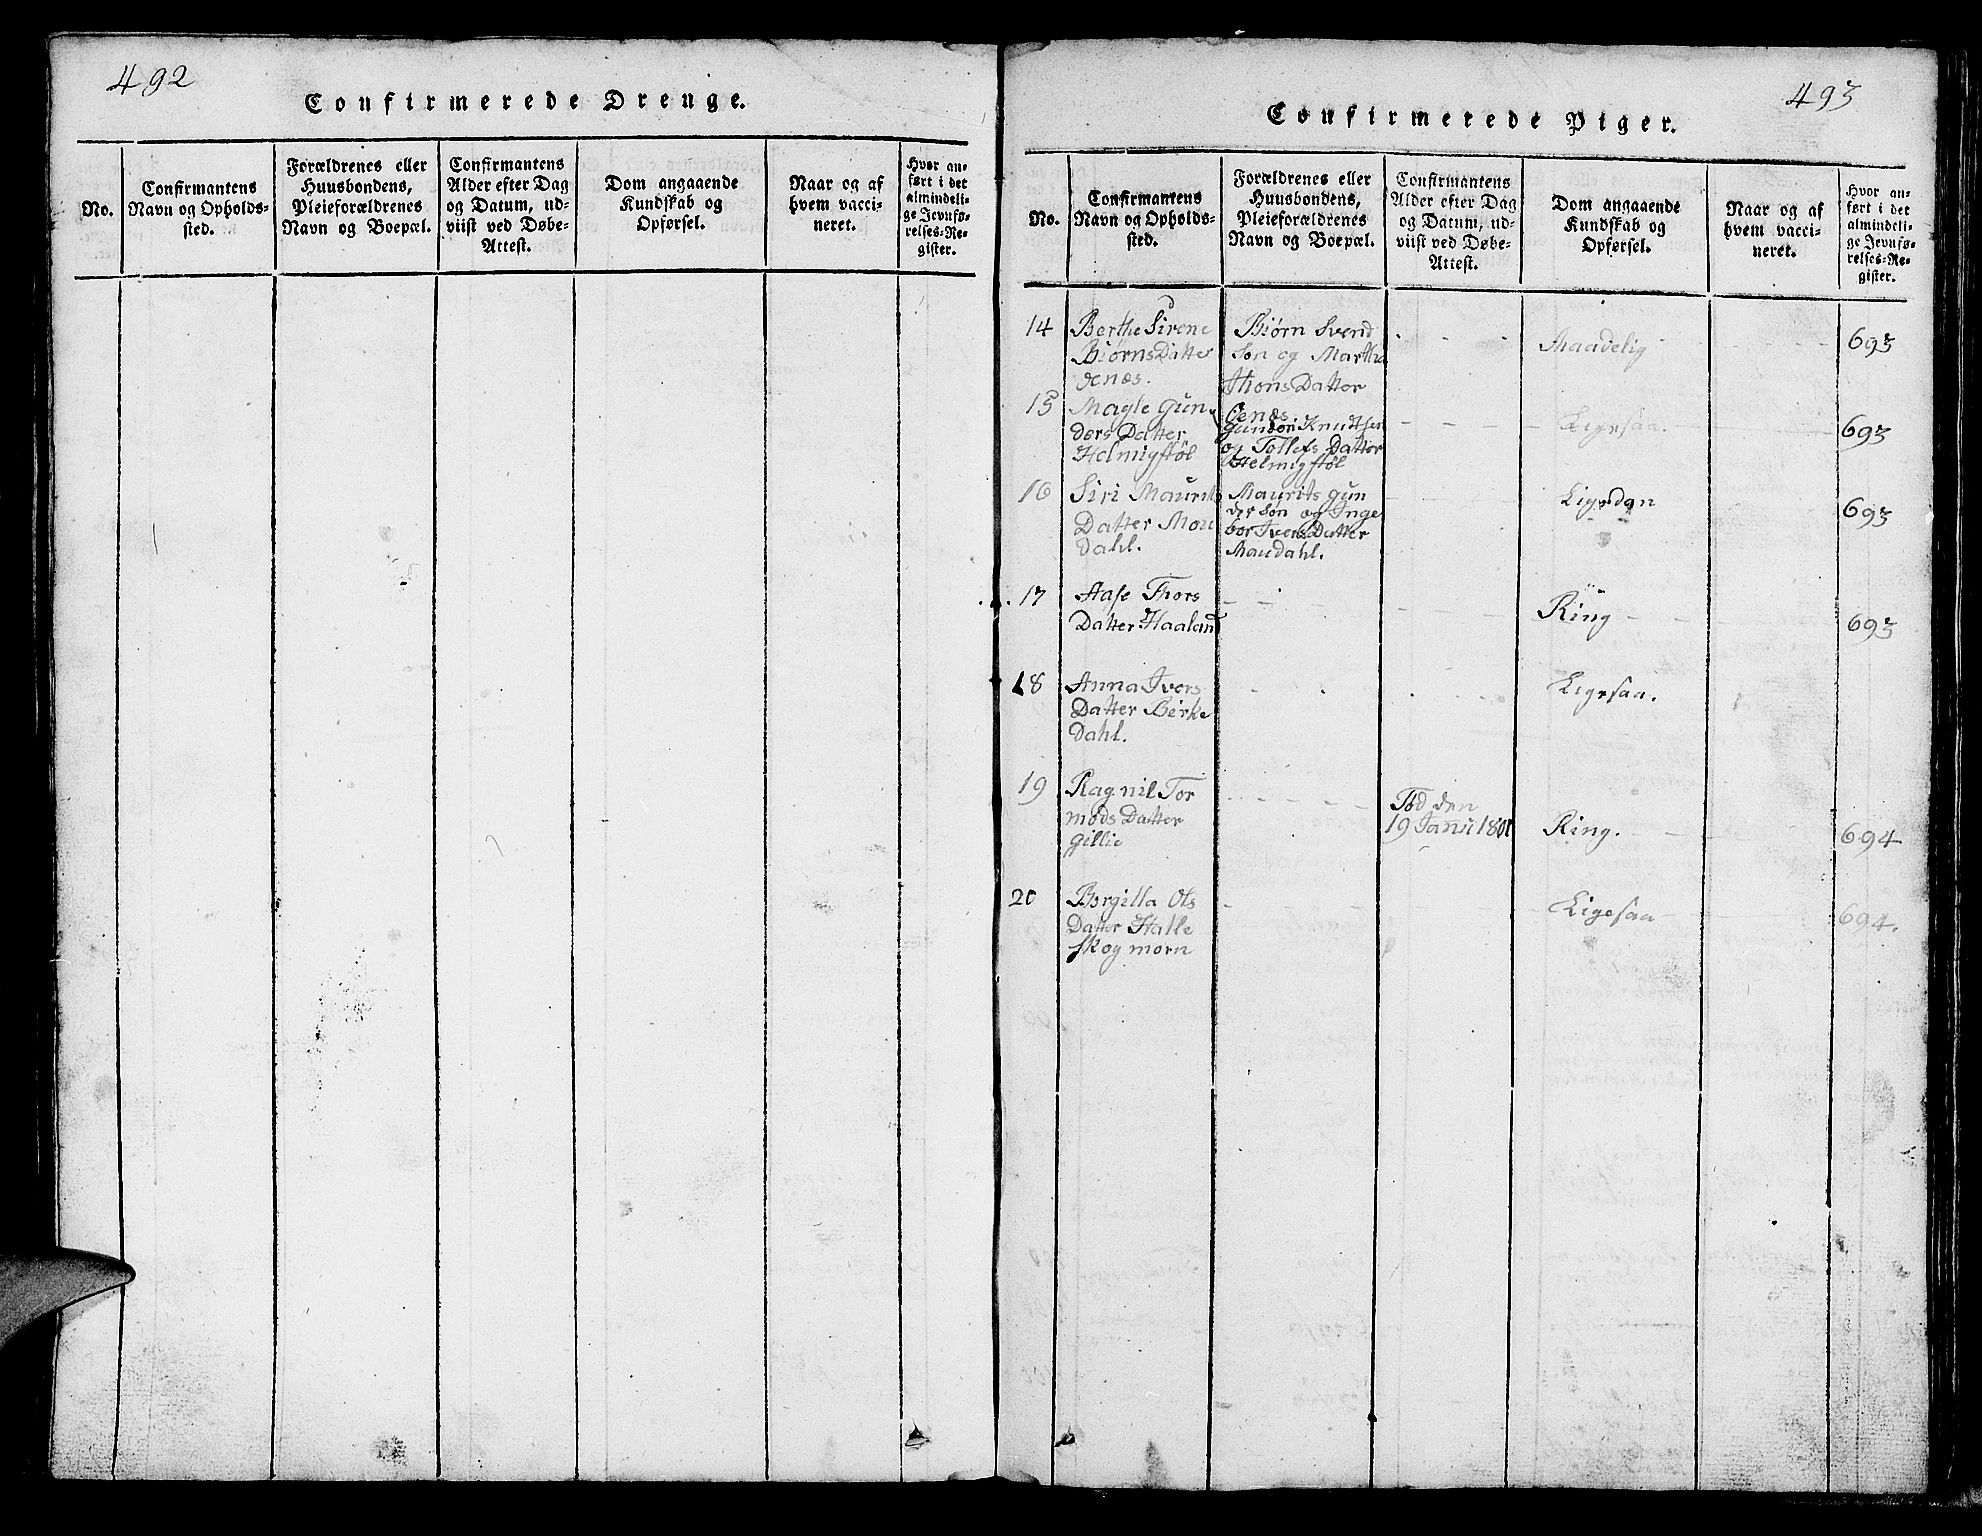 492
Confirmerede Drenge.
No.
Confirmantens
Navn og Opholds-
sted.
Forældrenes eller
Huusbondens,
Pleieforældrenes
Navn og Boepæl.
Confirmantens
Alder efter Dag
og Datum, ud-
viist ved Døbe-
Attest.
Dom angaaende
Kundskab og
Opførsel.
Naar og af
hvem vacci-
neret.
Hvor an-
ført i det
almindeli-
ge Jevnfø-
relses-Re-
gister.
493
Confirmerede Piger.
No.
Confirmantens
Navn og Opholds-
sted.
Forældrenes eller
Huusbondens,
Pleieforældrenes
Navn og Boepæl.
Confirmantens
Alder efter Dag
og Datum, ud-
viist ved Døbe-
Attest.
Dom angaaende
Kundskab og
Opførsel.
Naar og af
hvem vacci-
neret.
Hvor an-
ført i det
almindeli-
ge Jevnfø-
relses-Re-
gister.
14
Berthe Sirene
BiørnsDatter
Biørn Svend
Søn og Martha
ThonsDatter
Maadelig
693
15
Magle Gun-
dersDatter
Helmigstøl
Gunder Knudtsen
og Tollefs Datter
Helmigstøl
Ligesaa.
693
16
Siri Maurits
Datter Mou
Dahl.
Maurits Gun
der Søn og Inge
bor IversDatter
Maudahl.
Ligedan
693
17
Aase Thors
Datter Haaland
Ring
693
18
Anna Ivers
Datter Birke
Dahl.
Ligesaa.
19
Ragnil Tor
modsDatter
Gillie
Fød den
19 Janu 1801
Ring.
694
20
Borgilla Ols
Datter Halle
skog morn
Ligesaa
694.